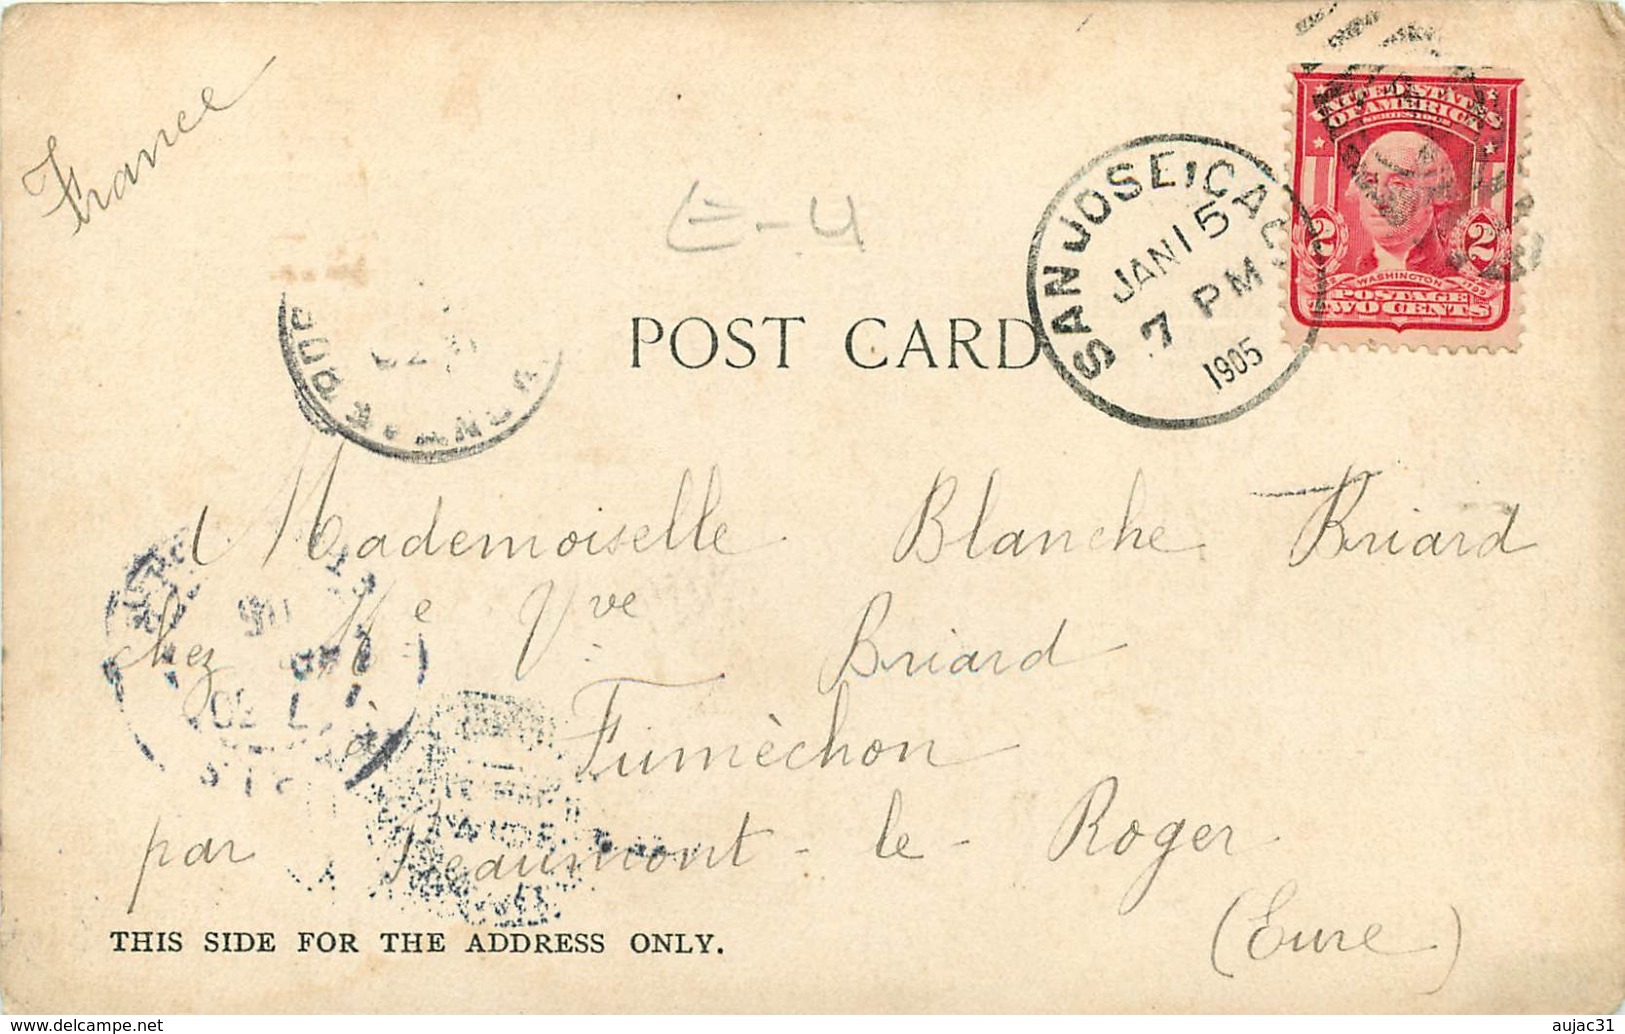 France
E-4
POST CARD
SAN JOSE, CAL
JAN 15
7 PM
1905
UNITED STATES
OF AMERICA
SERIES 1902
2 2
WASHINGTON
POSTAGE
TWO CENTS
Mademoiselle Blanche Briard
chez Me Vve Briard
à Fumèchon
par Beaumont-le-Roger
(Eure)
THIS SIDE FOR THE ADDRESS ONLY.
https://www.delcampe.net
aujac31